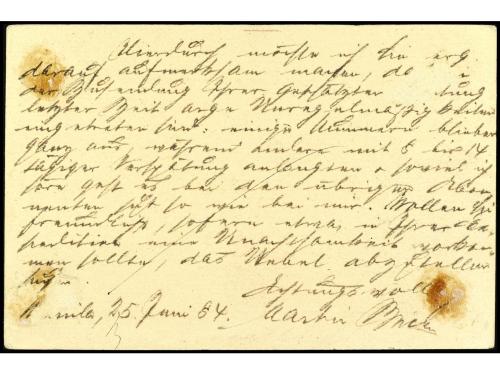 Hierdurch möchte ich Sie erg.
darauf aufmerksam machen, da
der Zusendung Ihrer geschätzten tung
letzter Zeit arge Unregelmässigkeiten
eingetreten sind: einige Nummern blieben
ganz aus, während andere mit 8 bis 14
tägiger Verspätung anlangten & soviel ich
höre geht es bei den übrigen Abon
nenten just so wie bei mir. Wollen Sie
freundlichst, sofern etwa in Ihrer Ex-
pedition eine Unachtsamkeit vorkom
men sollte, das Uebel abzustellen
suchen.
Achtungsvoll
Manila, 25 Juni 84. Martin